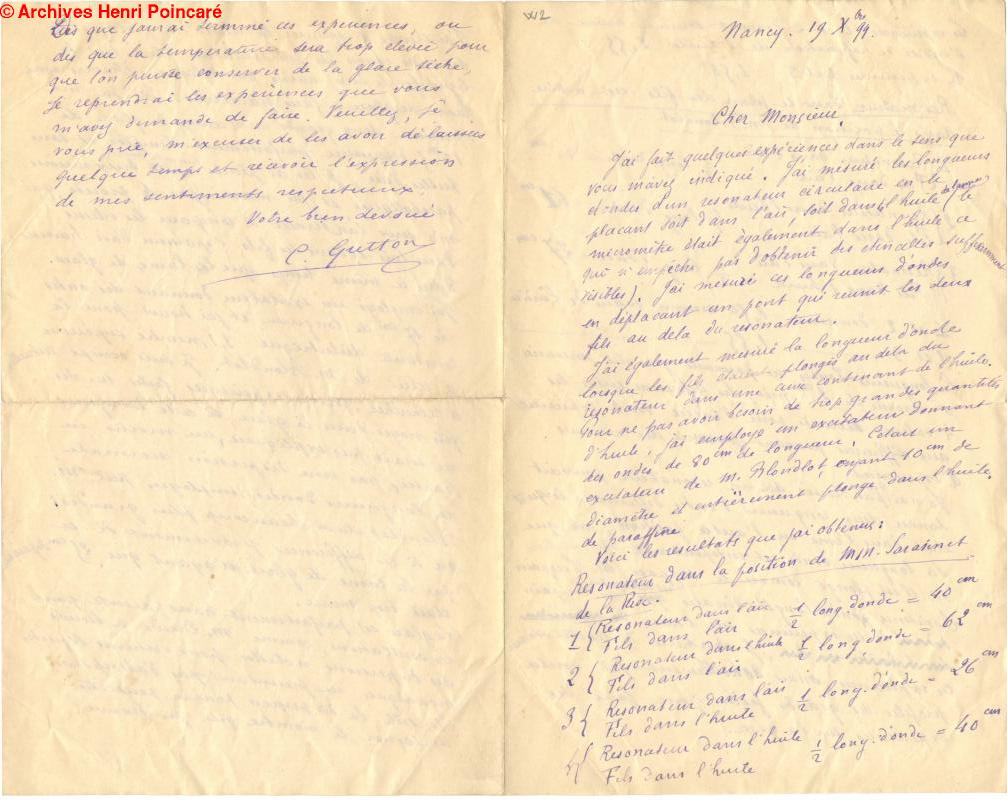 © Archives Henri Poincaré
Dès que j'aurai terminé ces expériences, ou
dès que la temperature sera trop elevée pour
que l'on puisse conserver de la glace sèche,
je reprendrai les expériences que vous
m'avez demandé de faire. Veuillez, je
vous prie, m'excuser de les avoir délaissées
quelque temps et recevoir l'expression
de mes sentiments respectueux
Votre bien devoué
C. Gutton
Nancy. 19 Xbre 99.
Cher Monsieur,
J'ai fait quelques expériences dans le sens que
vous m'avez indiqué. J'ai mesuré les longueurs
d'ondes d'un resonateur circulaire en le
plaçant soit dans l'air, soit dans l'huile (le
micromètre était également dans l'huile ce
qui n'empêche pas d'obtenir des étincelles suffisamment
visibles). J'ai mesuré ces longueurs d'ondes
en déplaçant un pont qui réunit les deux
fils au delà du resonateur.
J'ai également mesuré la longueur d'onde
lorsque les fils étaient plongés au delà du
resonateur dans une auge contenant de l'huile.
Pour ne pas avoir besoin de trop grandes quantités
d'huile, j'ai employé un excitateur donnant
des ondes de 80 cm de longueur. C'était un
excitateur de M. Blondlot ayant 10 cm de
diamètre et entièrement plongé dans l'huile
de paraffine
Voici les resultats que j'ai obtenus:
Resonateur dans la position de MM. Sarasin et
de la Rive.
1 { Resonateur dans l'air 1/2 long. d'onde = 40 cm
Fils dans l'air
2 { Resonateur dans l'huile 1/2 long. d'onde = 62 cm
Fils dans l'air
3 { Resonateur dans l'air 1/2 long. d'onde = 26 cm
Fils dans l'huile
4 { Resonateur dans l'huile 1/2 long. d'onde = 40 cm
Fils dans l'huile